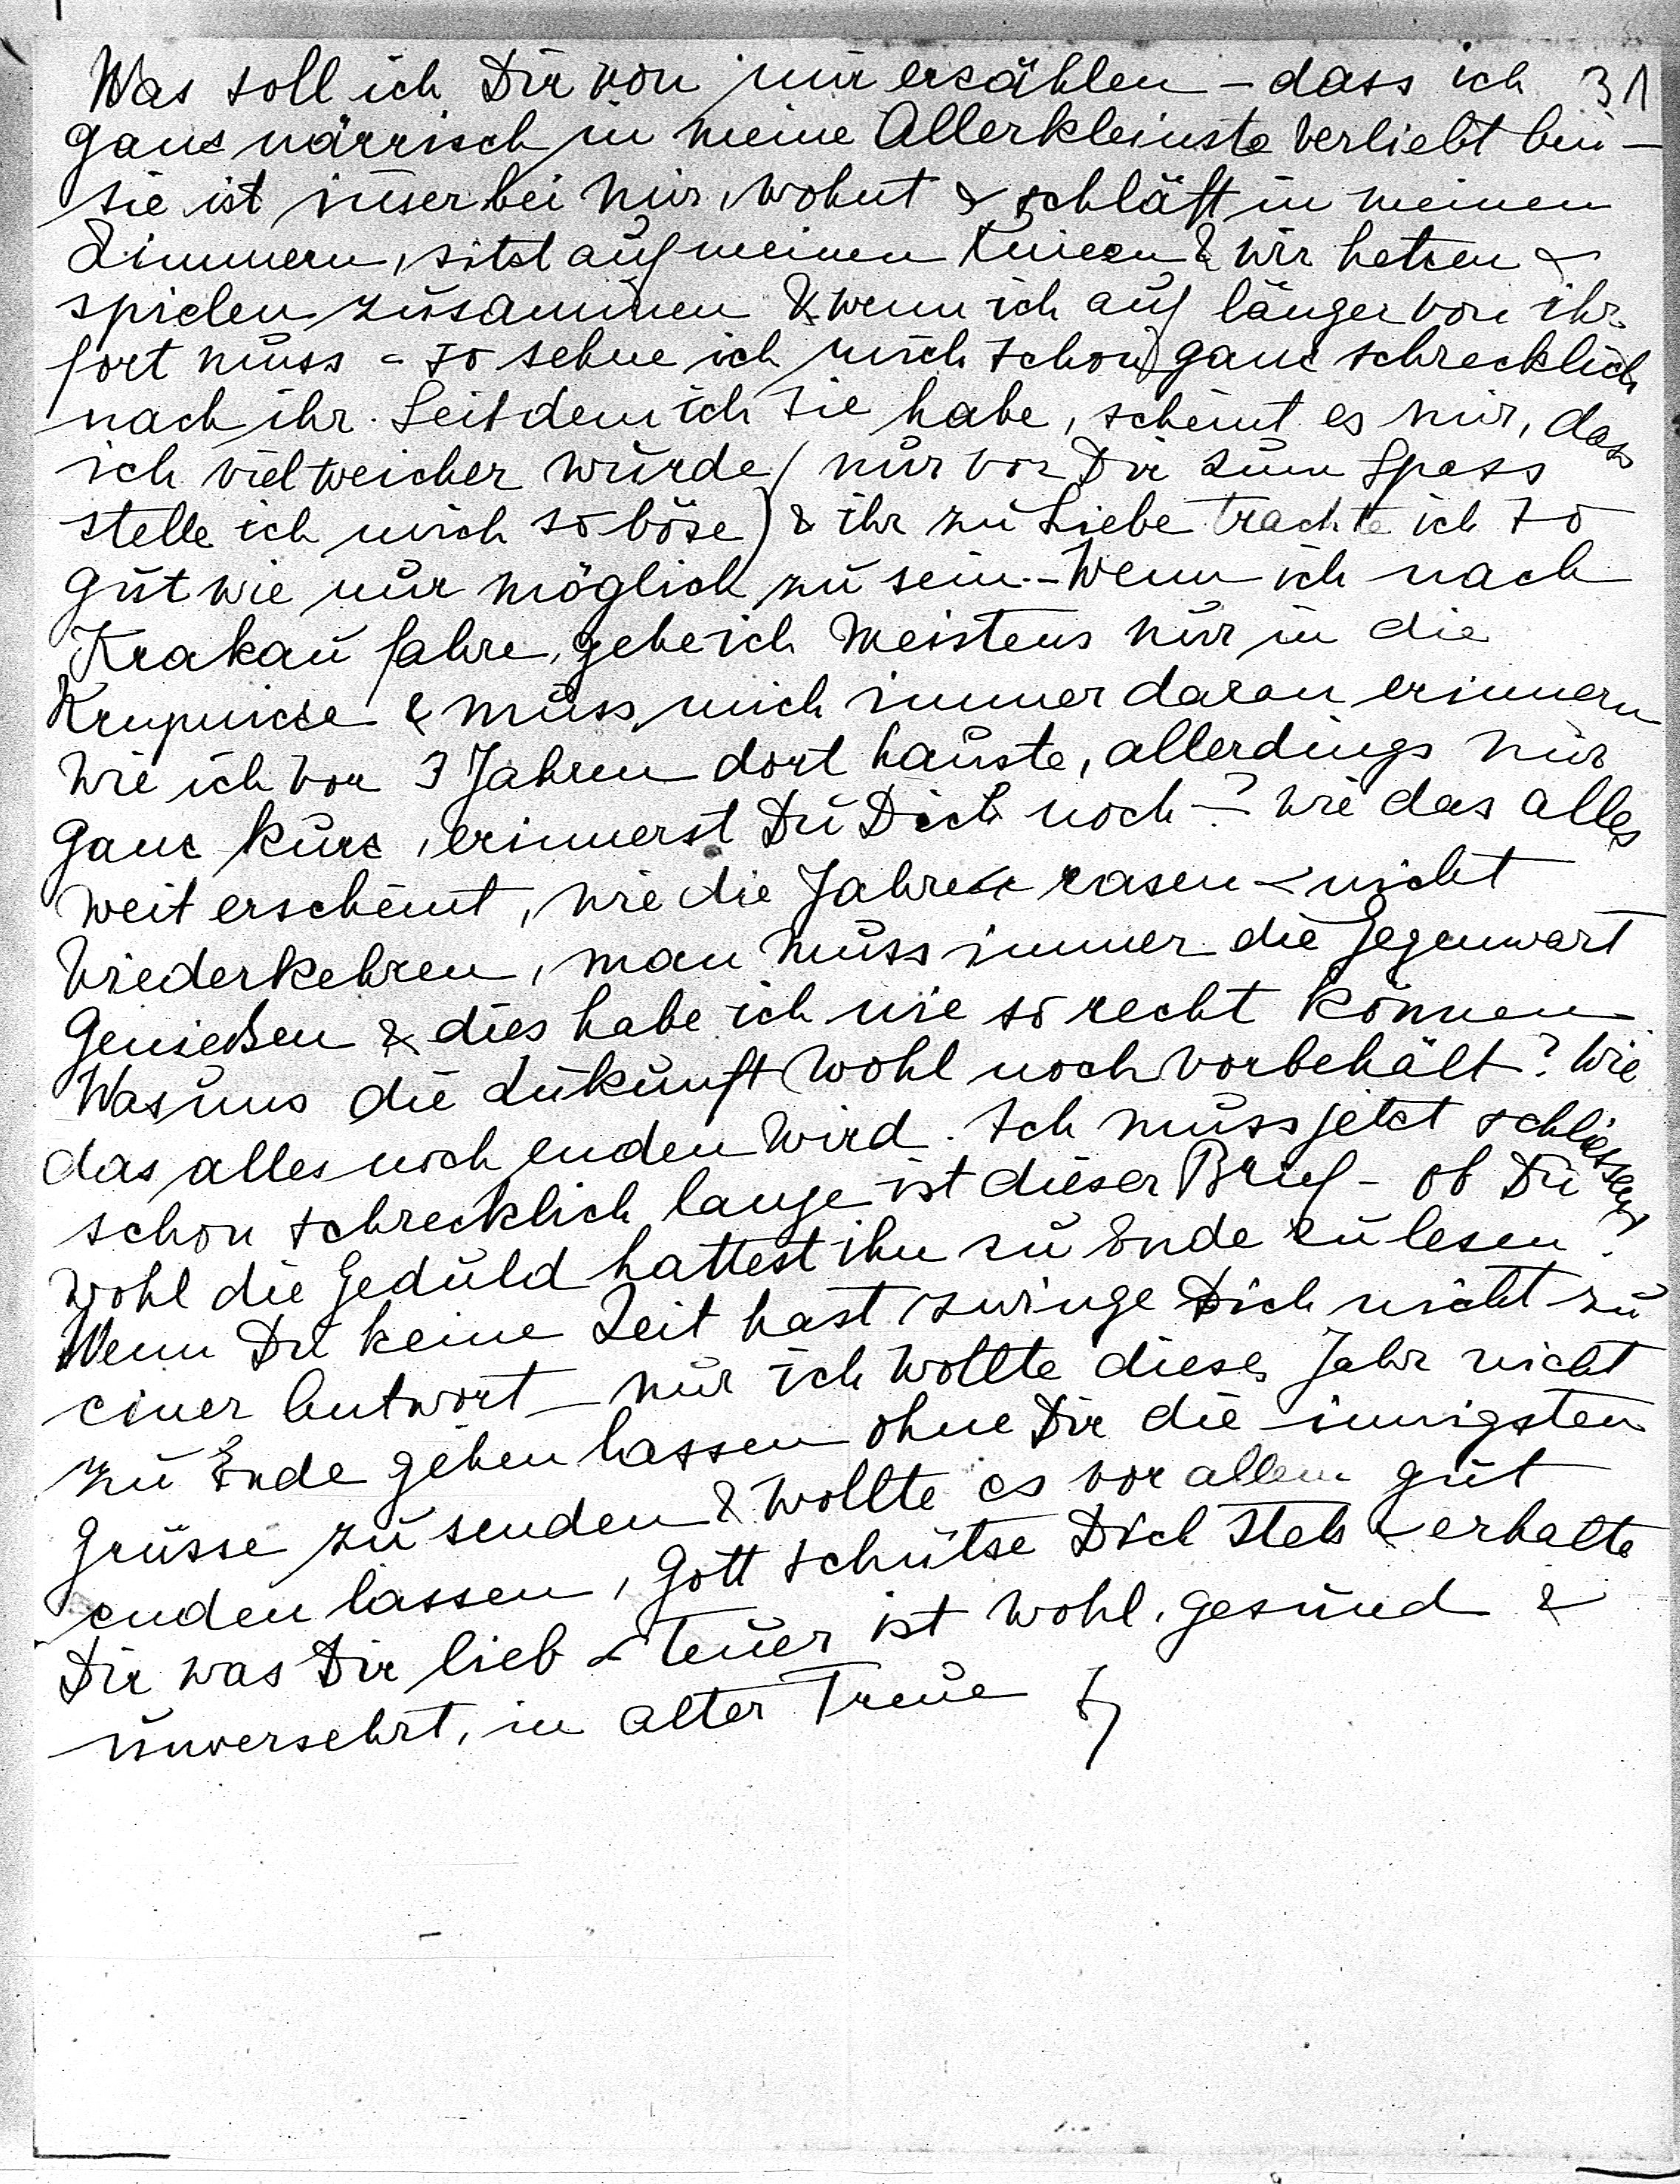 Was soll ich Dir von mir erzählen – dass ich 31
ganz närrisch in meine Allerkleinste verliebt bin –
sie ist immer bei mir, wohnt & schläft in meinen
Zimmern, sitzt auf meinen Knieen & wir hetzen &
spielen zusammen & wenn ich auf länger von ihr
fort muss – so sehne ich mich schon ganz schrecklich
nach ihr. Seitdem ich sie habe, scheint es mir, dass
ich viel weicher wurde (nur vor Dir zum Spass
stelle ich mich so böse) & ihr zu Liebe trachte ich so
gut wie nur möglich zu sein. – Wenn ich nach
Krakau fahre, gehe ich meistens nur in die
& muss mich immer daran erinnern
wie ich vor 3 Jahren dort hauste, allerdings nur
ganz kurz, erinnerst Du Dich noch –? wie das alles
weit erscheint, wie die Jahre rasen & nicht
wiederkehren, man muss immer die Gegenwart
genießen & dies habe ich nie so recht können
Was uns die Zukunft wohl noch vorbehält? Wie
das alles noch enden wird. Ich muss jetzt schliessen,
schon schrecklich lange ist dieser Brief – ob Du
wohl die Geduld hattest ihn zu Ende zu lesen?
Wenn Du keine Zeit hast, zwinge Dich nicht zu
einer Antwort – nur ich wollte dieses Jahr nicht
zu Ende gehen lassen ohne Dir die innigsten
Grüsse zu senden & wollte es vor allem gut
enden lassen, Gott schütze Dich stets & erhalte
Dir was Dir lieb & teuer ist wohl, gesund &
unversehrt, in alter Treue